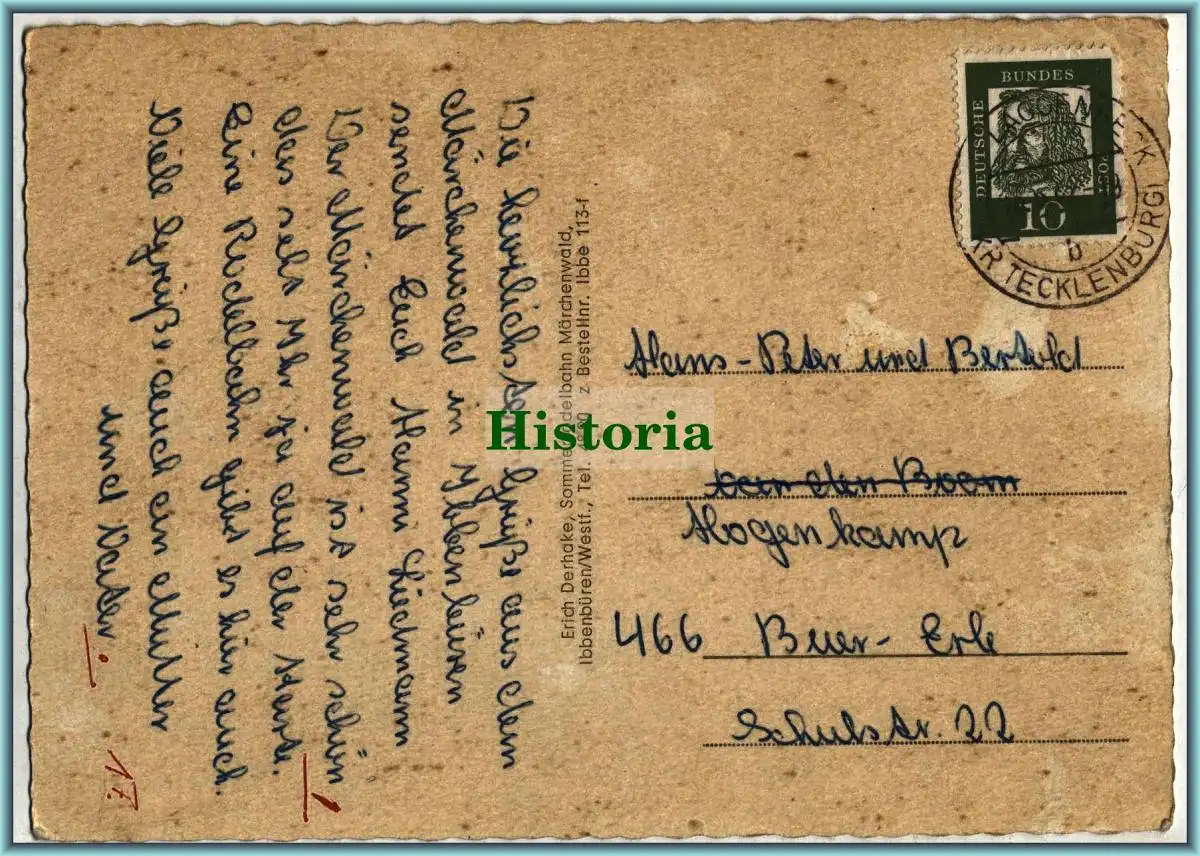 Die herzlichsten Grüße aus dem
Märchenwald in Ibbenbüren
sendet Euch Hanni Liedmann
Der Märchenwald ist sehr schön
den seht Ihr ja auf der Karte.
Eine Rodelbahn gibt es hier auch.
Viele Grüße auch an Mutter
und Vater.
17.
Erich Derhake, Sommerrodelbahn Märchenwald,
Ibbenbüren/Westf., Tel. z Bestellnr. Ibbe 113-f
Historia
DEUTSCHE
BUNDES
POST
10
b
KR TECKLENBURG
Hans-Peter und Bertold
van den Boom
Hogenkamp
466 Buer-Erle
Schulstr. 22